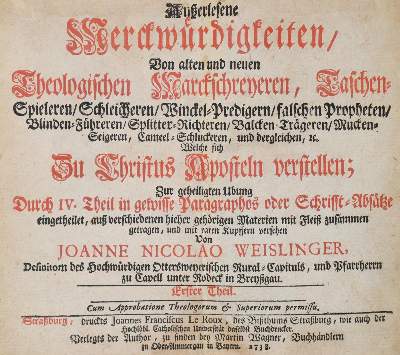 Außerlesene
Merckwürdigkeiten/
Von alten und neuen
Theologischen Marckschreyeren, Taschen-
Spieleren/Schleicheren/Winckel-Predigern/falschen Propheten/
Blinden-Führeren/Splitter-Richteren/Balcken-Trägeren/Mucken-
Seigeren, Cameel-Schluckeren, und dergleichen, ꝛc.
Welche sich
Zu Christus Aposteln verstellen;
Zur geheiligten Ubung
Durch IV. Theil in gewisse Paragraphos oder Schrifft-Absätze
eingetheilet, auß verschiedenen hieher gehörigen Materien mit Fleiß zusammen
getragen, und mit raren Kupffern versehen
Von
JOANNE NICOLAO WEISLINGER,
Definitorn des Hochwürdigen Ottersweyerischen Rural-Capituls, und Pfarrherrn
zu Capell unter Rodeck in Breyßgau.
Erster Theil.
Cum Approbatione Theologorum & Superiorum permissu.
Straßburg, druckts Joannes Franciscus Le Roux, des Bisthums Straßburg, wie auch der
Hochlöbl. Catholischen Universität daselbst Buchdrucker.
Verlegts der Author, zu finden bey Martin Wagner, Buchhändlern
zu Ober-Ammergau in Bayern. 1738.